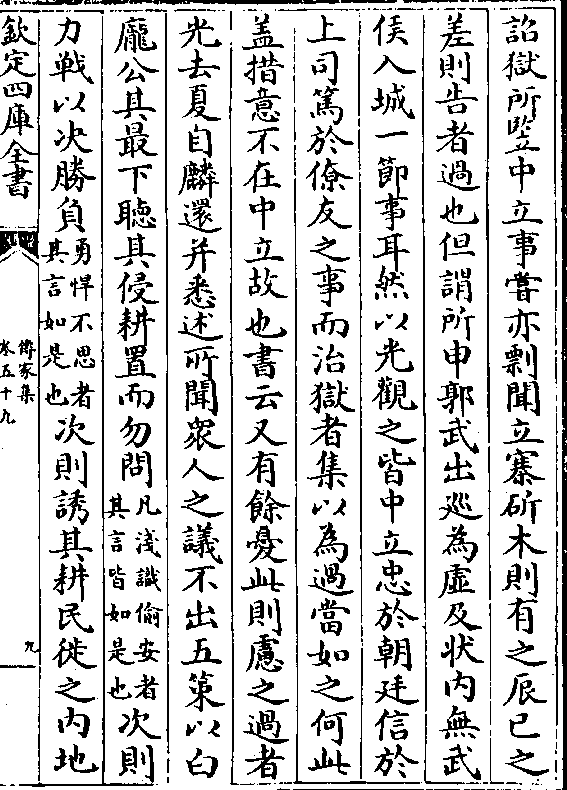 詔獄所竪中立事嘗亦剽聞立寨斫木則有之辰巳之
差則告者過也但謂所申郭武出廵為虛及狀内無武
侯入城一節事耳然以光觀之皆中立忠於朝廷信於
上司篤於僚友之事而治獄者集以為過當如之何此
盖措意不在中立故也書云又有餘憂此則慮之過者
光去夏自麟還并悉述所聞衆人之議不出五策以白
龐公其最下聽其侵耕置而勿問凡淺識偷安者其言皆如是也次則
力戰以决勝負勇悍不思者其言如是也次則誘其耕民徙之内地
欽定四庫全書
傳家集
卷五十九
九